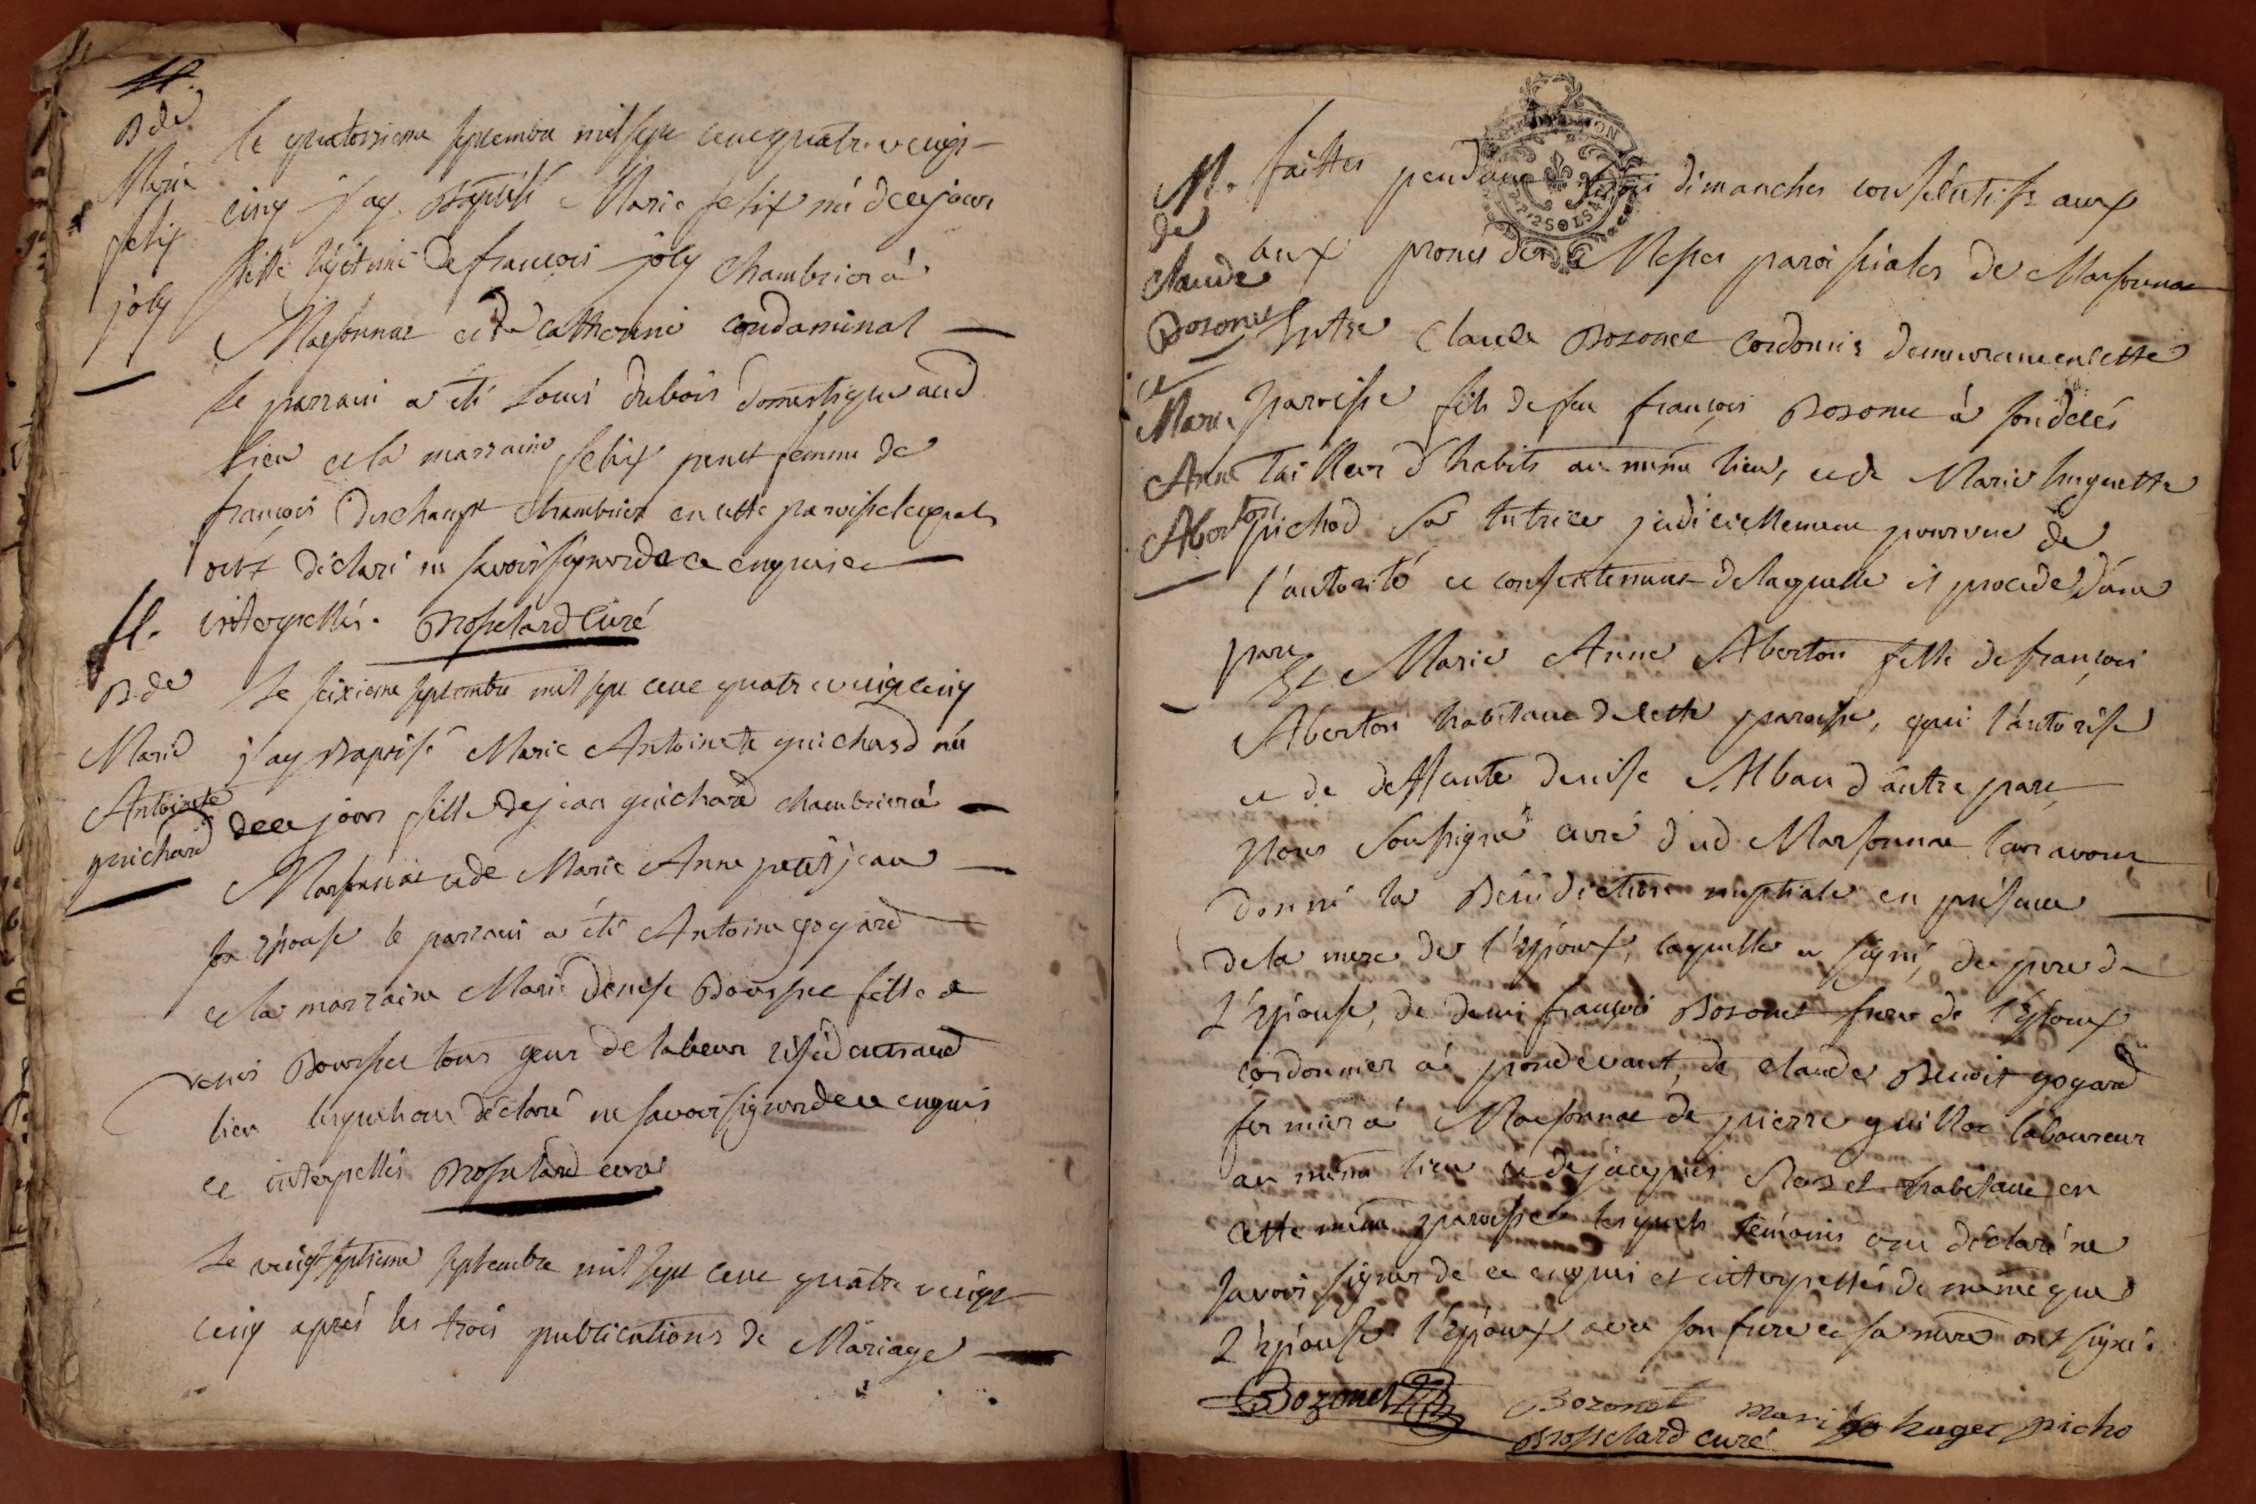 B de
Marie
felix
joly
le quatorzieme septembre mil sept cent quatre vingt
cinq j'ay Baptisé Marie felix né de ce jour
fille légitime de françois joly Chambrier à
Marsonnat et de Catherine condaminal
le parrain a été Louis dubois domestique aud
lieu et la marraine felix penet femme de
françois Deschamps Chambrier en cette paroisse lesquels
ont déclaré ne savoir signer de ce enquis et
interpellés. Brosselard Curé
B. de
Marie
Antoinete
guichard
le seizieme septembre mil sept cent quatre vingt cinq
j'ay Baptisé Marie Antoinete guichard né
de ce jour fille de jean guichard chambrier à
Marsonnat et de Marie Anne petitjean
son Epouse le parrain a été Antoine gogard
et la marraine Marie Denise Boursier fille a
Denis Boursier tous gens de labeur résidents aud
lieu lesquels ont déclaré ne savoir signer de ce enquis
et interpellés Brosselard curé
le vingt septieme septembre mil sept cent quatre vingt
cinq aprés les trois publications de Mariage
M.
de
Claude
Bozonet
et
Marie
Anne
Aberton
faittes pendant trois dimanches consécutifs aux
aux prones des Messes paroissiales de Marsonnat
Entre Claude Bozonet Cordonnier demeurant en cette
paroisse fils de feu françois Bozonet à son décés
Tailleur d'habits au même lieu, et de Marie huguette
pichod sa tutrice judiciellement pourvue de
l'autorité et consentement de laquelle il procede d'une
part
Et Marie Anne Aberton fille de françois
Aberton habitant de cette paroisse, qui l'autorise
et de deffunte denise Alban d'autre part
Nous soussigné curé dud Marsonnat leur avons
donné la Bénédiction nuptiale en présence
de la mere de l'Epoux, laquelle a signé, du pere de
l'Epouse, de denis françois Bozonet frere de l'Epoux
cordonnier à pondevaux, de claude Benoit gogard
fermier à Marsonnat de pierre guillot laboureur
au même lieu et de jacques Rozet habitant en
cette même paroisse lesquels témoins ont déclaré ne
savoir signer de ce enquis et interpellés de meme que
l'Epouse l'Epoux avec son frere et sa mere ont signé.
Bozonet Bozonet mari huget picho
Brosselard curé